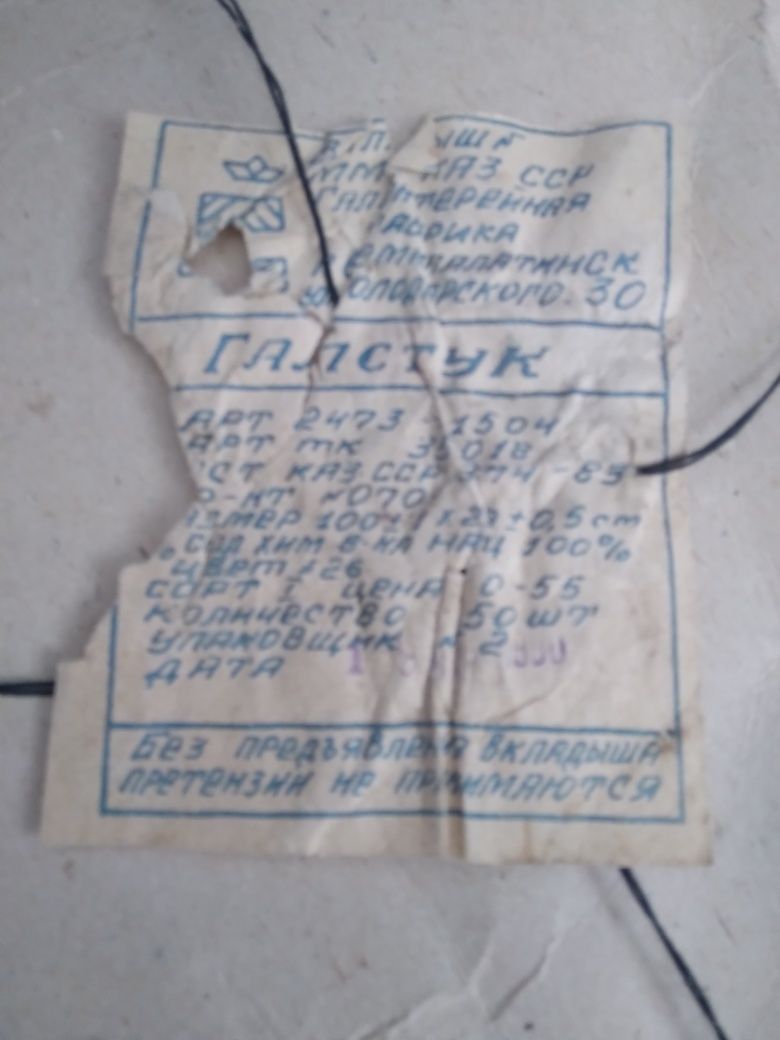 ММ КАЗ ССР
ГАЛАНТЕРЕЙНАЯ
ФАБРИКА
СЕМИПАЛАТИНСК
ВОЛОДАРСКОГО 30
ГАЛСТУК
АРТ 2473-1504
АРТ ТК
ОСТ КАЗ ССР -83
Р-КТ №070
РАЗМЕР 100±1 Х ±0,5 см
ХИМ В-КА НАЦ 100%
ЦВЕТ 26
СОРТ I ЦЕНА 0-55
КОЛИЧЕСТВО 50 ШТ
УПАКОВЩИК №2
ДАТА
БЕЗ ПРЕДЪЯВЛЕНИЯ ВКЛАДЫША
ПРЕТЕНЗИИ НЕ ПРИНИМАЮТСЯ